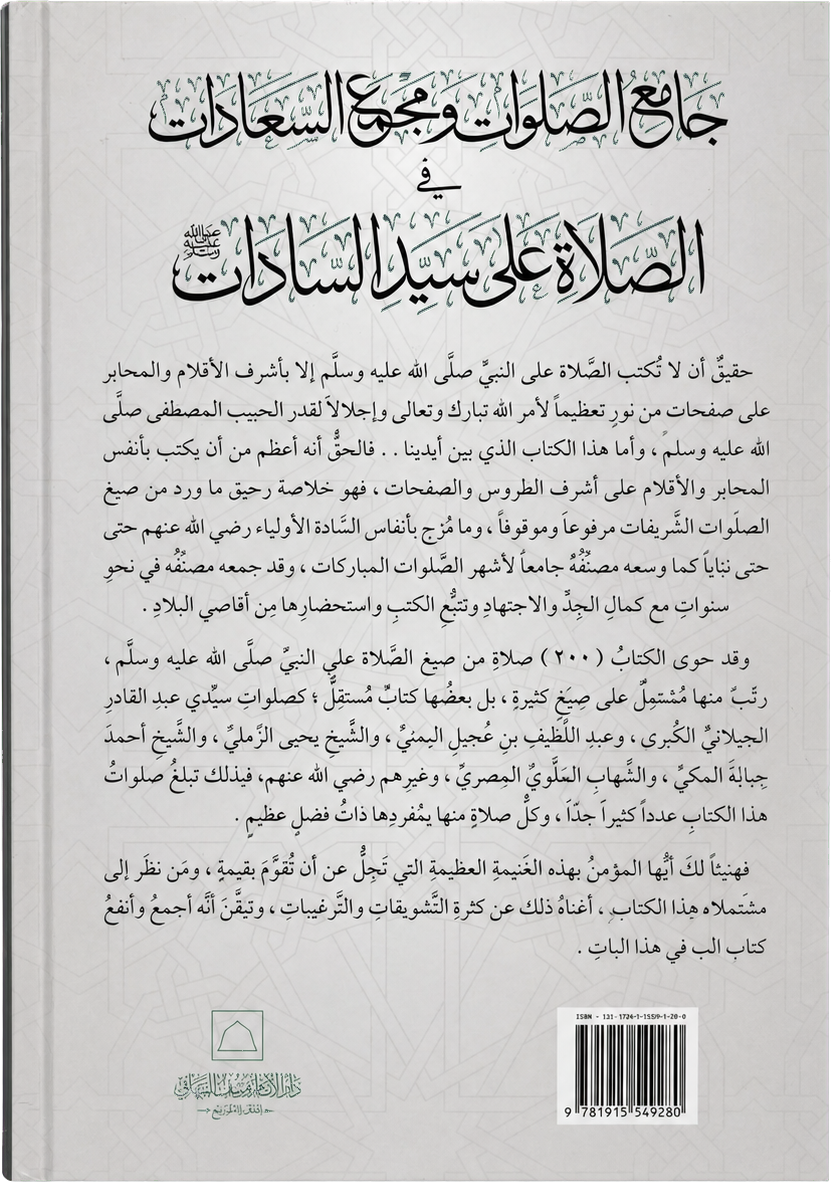 جَامِعُ الصَّلَوَاتِ وَمَجْمَعُ السَّعَادَاتِ
فِي
الصَّلَاةِ عَلَى سَيِّدِ السَّادَاتِ ﷺ
حقيقٌ أن لا تُكتب الصَّلاة على النبيِّ صلَّى الله عليه وسلَّم إلا بأشرف الأقلام والمحابر
على صفحات من نورٍ تعظيماً لأمر الله تبارك وتعالى وإجلالاً لقدر الحبيب المصطفى صلَّى
الله عليه وسلم ، وأما هذا الكتاب الذي بين أيدينا . . فالحقُّ أنه أعظم من أن يكتب بأنفس
المحابر والأقلام على أشرف الطروس والصفحات ، فهو خلاصة رحيق ما ورد من صيغ
الصلَوات الشَّريفات مرفوعاً وموقوفاً ، وما مُزج بأنفاس السَّادة الأولياء رضي الله عنهم حتى
حتى كما وسعه مصنِّفُهُ جامعاً لأشهر الصَّلوات المباركات ، وقد جمعه مصنِّفُه في نحوِ
سنواتٍ مع كمالِ الجِدِّ والاجتهادِ وتتبُّعِ الكتبِ واستحضارِها مِن أقاصي البلادِ .
وقد حوى الكتابُ ( ٢٠٠ ) صلاةٍ من صيغ الصَّلاة على النبيِّ صلَّى الله عليه وسلَّم ،
رتّبٌ منها مُشتمِلٌ على صِيَغٍ كثيرةٍ ، بل بعضُها كتابٌ مُستقِلٌّ ؛ كصلواتِ سيِّدي عبدِ القادرِ
الجيلانيِّ الكُبرى ، وعبدِ اللَّظيفِ بنِ عُجيلِ اليمنيِّ ، والشَّيخِ يحيى الزَّمليِّ ، والشَّيخِ أحمدَ
جِبالةَ المكيِّ ، والشَّهابِ العَلَّويِّ المِصريِّ ، وغيرِهم رضي الله عنهم، فيذلك تبلغُ صلواتُ
هذا الكتابِ عدداً كثيراً جدّاً ، وكلُّ صلاةٍ منها يمُفردِها ذاتُ فضلٍ عظيمٍ .
فهنيئاً لكَ أيُّها المؤمنُ بهذه الغَنيمةِ العظيمةِ التي تَجِلُّ عن أن تُقوَّمَ بقيمةٍ ، ومَن نظَر إلى
مشتملاه هِذا الكتاب ، أغناهُ ذلك عن كثرةِ التَّشويقاتِ والتَّرغيباتِ ، وتيقَّنَ أنَّه أجمعُ وأنفعُ
كتاب الب في هذا الباتِ .
ISBN - 131-1724-1-1559-1-20-0
9 781915 549280